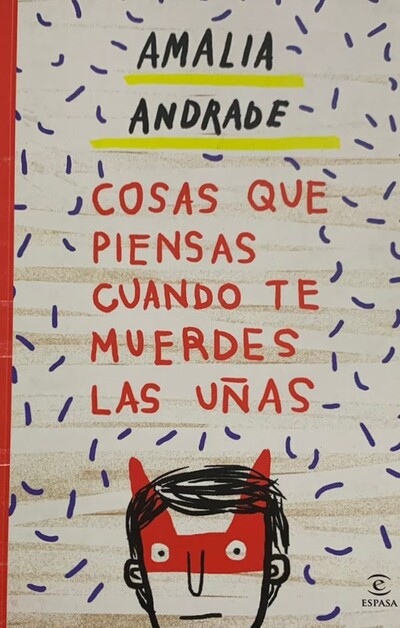 AMALIA
ANDRADE
COSAS QUE
PIENSAS
CUANDO TE
MUERDES
LAS UÑAS
e
ESPASA